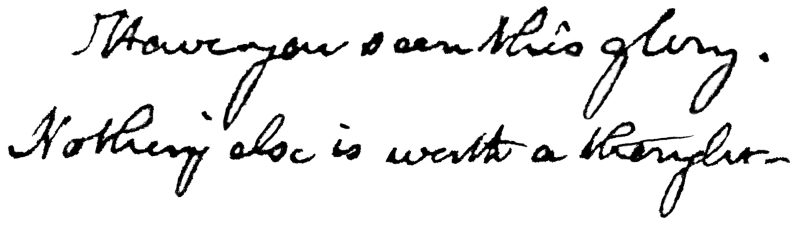 Have you seen this glory.
Nothing else is worth a thought—